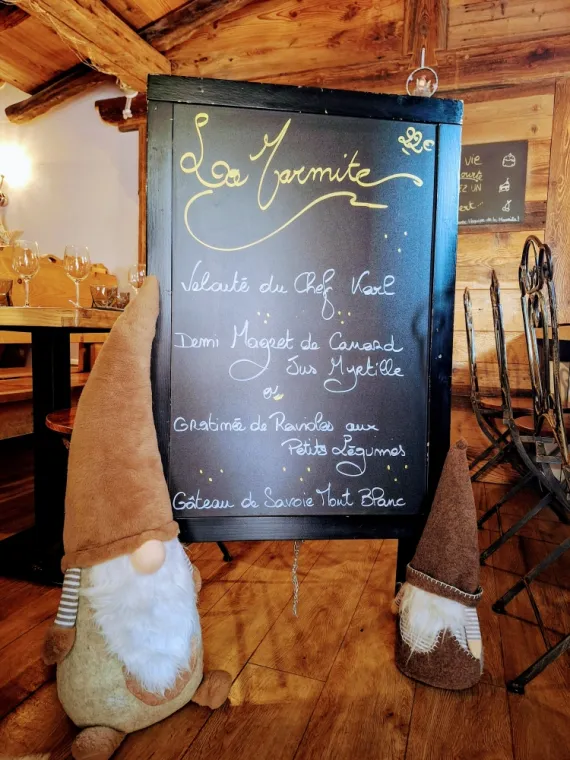 La Marmite
22€
Velouté du Chef Karl
Demi Magret de Canard
Jus Myrtille
ou
Gratinée de Ravioles aux
Petits Légumes
Gâteau de Savoie Mont Blanc
VIE